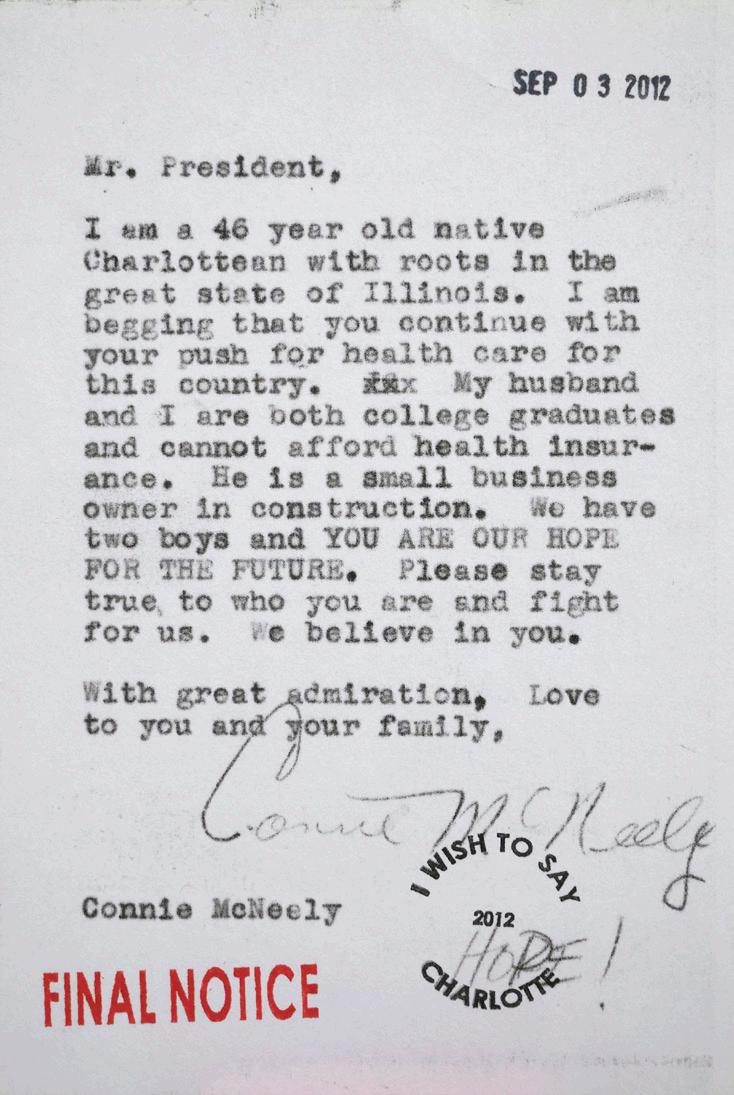 SEP 03 2012
Mr. President,
I am a 46 year old native
Charlottean with roots in the
great state of Illinois.  I am
begging that you continue with
your push for health care for
this country.  xxx  My husband
and I are both college graduates
and cannot afford health insur-
ance.  He is a small business
owner in construction.  We have
two boys and YOU ARE OUR HOPE
FOR THE FUTURE.  Please stay
true, to who you are and fight
for us.  We believe in you.
With great admiration,  Love
to you and your family,
Connie McNeely
I WISH TO SAY
Connie McNeely
2012
HOPE!
CHARLOTTE
FINAL NOTICE